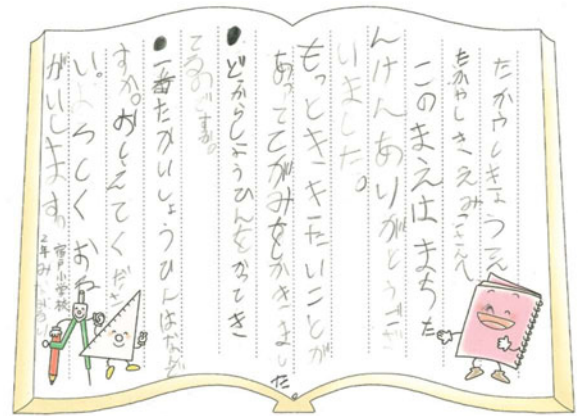 たかやしきょうこ
たかやしきえみこさんへ
このまえはまちた
んけんありがとうござ
いました。
もっとききたいことが
あっててがみをかきました。
●どからしょうひんをかってき
てるのですか。
●一番たかいしょうひんはなん
すか。おしえてくださ
い。よろしくおね
がいします。
宿戸小学校
2年